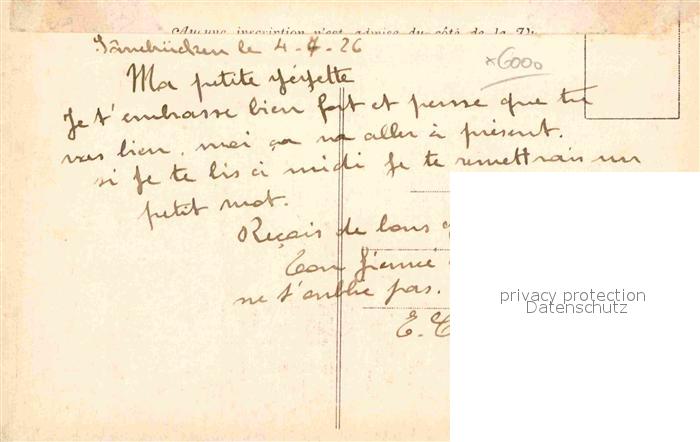 Aucune inscription n'est admise du côté de la
le 4-7-26
x6000
Ma petite
Je t'embrasse bien fort et pense que tu
vas bien, moi ça va aller à présent.
si Je te lis à midi Je te remettrais un
petit mot.
Reçois de
Ton fiancé
ne t'oublie pas.
E.
privacy protection
Datenschutz